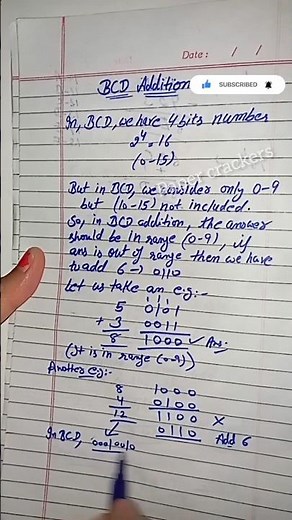 Date: / /
BCD Addition
SUBSCRIBED
In, BCD, we have 4 bits number
2⁴ = 16
(0-15)
crackers
But in BCD, we consider only 0-9
but (10-15) not included.
So, in BCD addition, the answer
should be in range (0-9), if
ans is out of range then we have
to add 6 → 0110
Let us take an eg:-
1 1 1
5 0101
+ 3 0011
8 1000 ✓ Ans:
(It is in range (0-9))
Another eg:-
8 1000
4 0100
12 1100 X
0110 Add 6
In BCD, 0001 0010